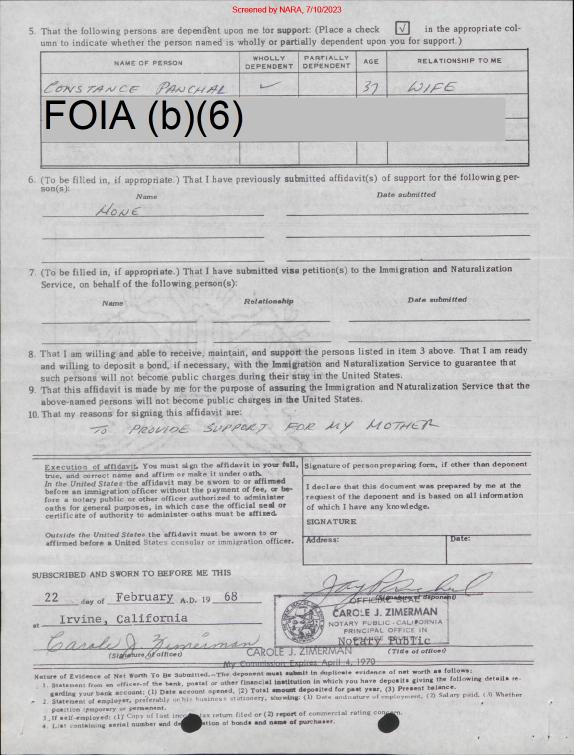 Screened by NARA, 7/10/2023
5. That the following persons are dependent upon me for support: (Place a check √ in the appropriate col-
umn to indicate whether the person named is wholly or partially dependent upon you for support.)
NAME OF PERSON WHOLLY DEPENDENT PARTIALLY DEPENDENT AGE RELATIONSHIP TO ME
CONSTANCE PANCHAL ✓ 37 WIFE
FOIA (b)(6)
6. (To be filled in, if appropriate.) That I have previously submitted affidavit(s) of support for the following per-
son(s):
Name Date submitted
NONE
7. (To be filled in, if appropriate.) That I have submitted visa petition(s) to the Immigration and Naturalization
Service, on behalf of the following person(s):
Name Relationship Date submitted
8. That I am willing and able to receive, maintain, and support the persons listed in item 3 above. That I am ready
and willing to deposit a bond, if necessary, with the Immigration and Naturalization Service to guarantee that
such persons will not become public charges during their stay in the United States.
9. That this affidavit is made by me for the purpose of assuring the Immigration and Naturalization Service that the
above-named persons will not become public charges in the United States.
10. That my reasons for signing this affidavit are:
TO PROVIDE SUPPORT FOR MY MOTHER
Execution of affidavit. You must sign the affidavit in your full,
true, and correct name and affirm or make it under oath.
In the United States the affidavit may be sworn to or affirmed
before an immigration officer without the payment of fee, or be-
fore a notary public or other officer authorized to administer
oaths for general purposes, in which case the official seal or
certificate of authority to administer oaths must be affixed.
Outside the United States the affidavit must be sworn to or
affirmed before a United States consular or immigration officer.
Signature of person preparing form, if other than deponent
I declare that this document was prepared by me at the
request of the deponent and is based on all information
of which I have any knowledge.
SIGNATURE
Address: Date:
SUBSCRIBED AND SWORN TO BEFORE ME THIS
22 day of February A.D. 19 68
at Irvine, California
Carole J. Zimerman
(Signature of officer)
(Signature of deponent)
OFFICIAL SEAL
CAROLE J. ZIMERMAN
NOTARY PUBLIC - CALIFORNIA
PRINCIPAL OFFICE IN
Notary Public
(Title of officer)
CAROLE J. ZIMERMAN
My Commission Expires April 4, 1970
Nature of Evidence of Net Worth To Be Submitted.—The deponent must submit in duplicate evidence of net worth as follows:
1. Statement from an officer of the bank, postal or other financial institution in which you have deposits giving the following details re-
garding your bank account: (1) Date account opened, (2) Total amount deposited for past year, (3) Present balance.
2. Statement of employer, preferably on his business stationery, showing: (1) Date and nature of employment, (2) Salary paid, (3) Whether
position temporary or permanent.
3. If self-employed: (1) Copy of last income tax return filed or (2) report of commercial rating concern.
4. List containing serial number and denomination of bonds and name of purchaser.